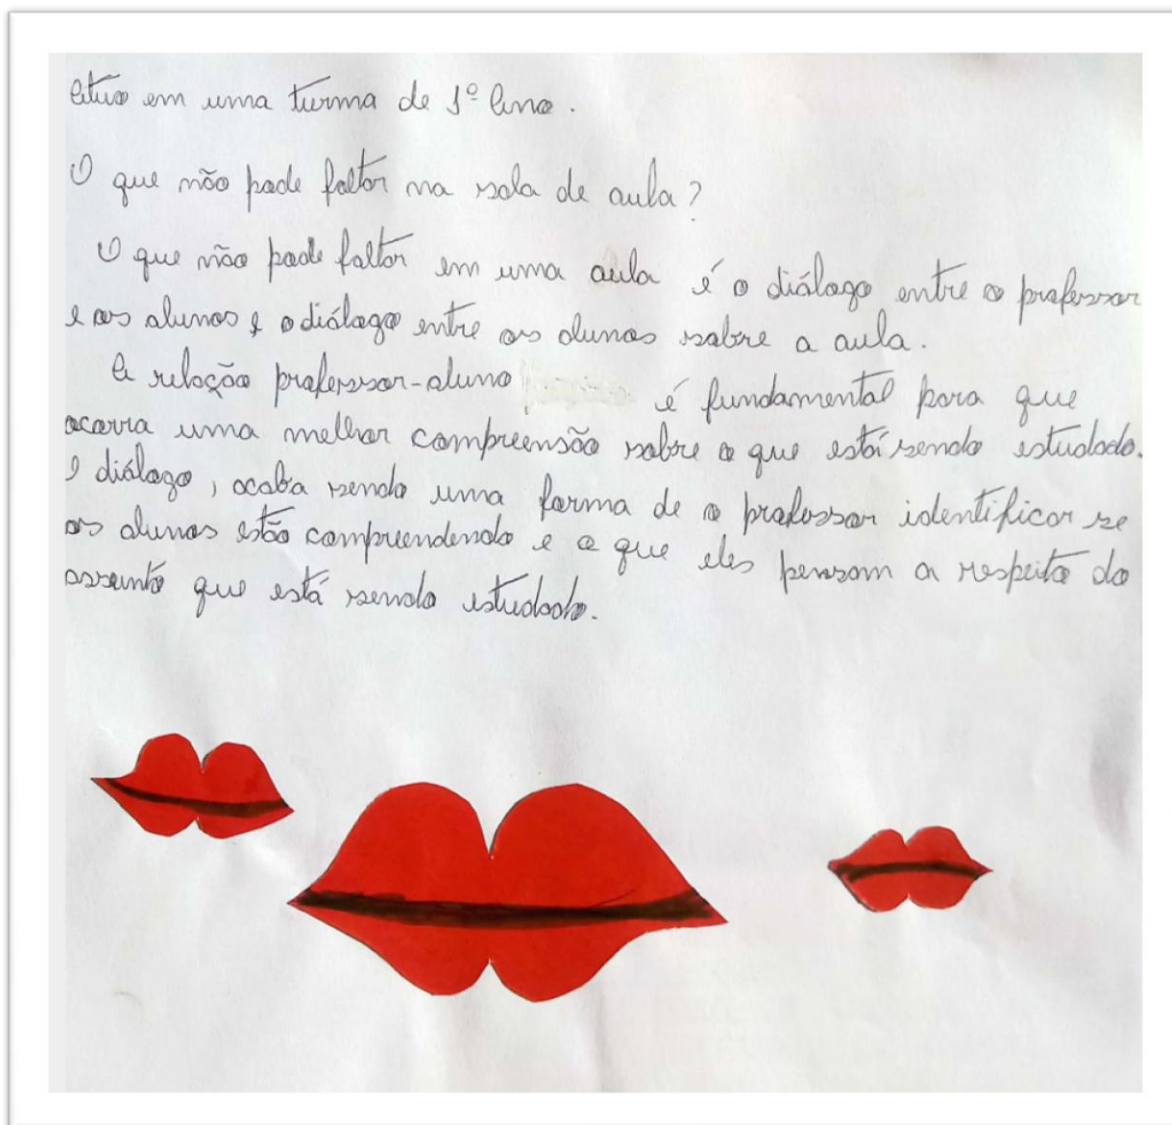 atuo em uma turma de 1º Ano.
O que não pode faltar na sala de aula?
O que não pode faltar em uma aula é o diálogo entre o professor
e os alunos e o diálogo entre os alunos sobre a aula.
A relação professor-aluno é fundamental para que
ocorra uma melhor compreensão sobre o que está sendo estudado.
O diálogo, acaba sendo uma forma de o professor identificar se
os alunos estão compreendendo e o que eles pensam a respeito do
assunto que está sendo estudado.